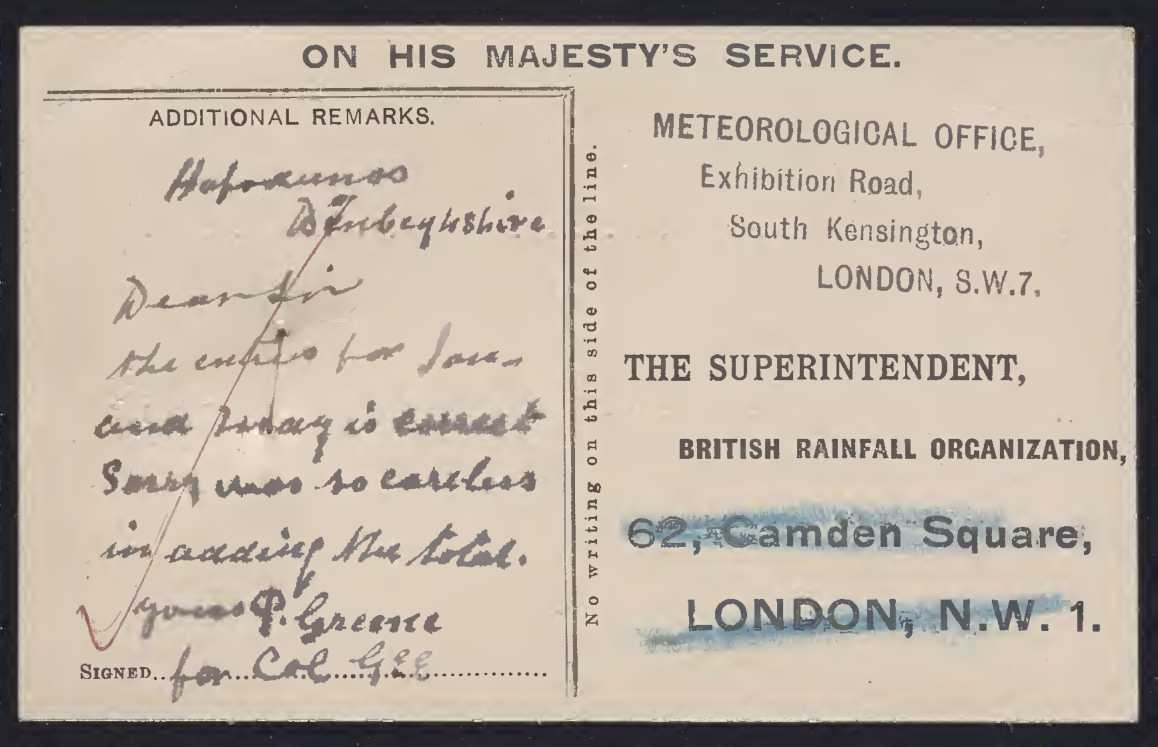 ON HIS MAJESTY'S SERVICE.
ADDITIONAL REMARKS.
Hafodunos
Denbeighshire
Dear Sir
the entries for Jan.
and today is correct
Sorry was so careless
in adding the total.
yours P. Greene
SIGNED for Col GEE
No writing on this side of the line.
METEOROLOGICAL OFFICE,
Exhibition Road,
South Kensington,
LONDON, S.W.7.
THE SUPERINTENDENT,
BRITISH RAINFALL ORGANIZATION,
62, Camden Square,
LONDON, N.W. 1.